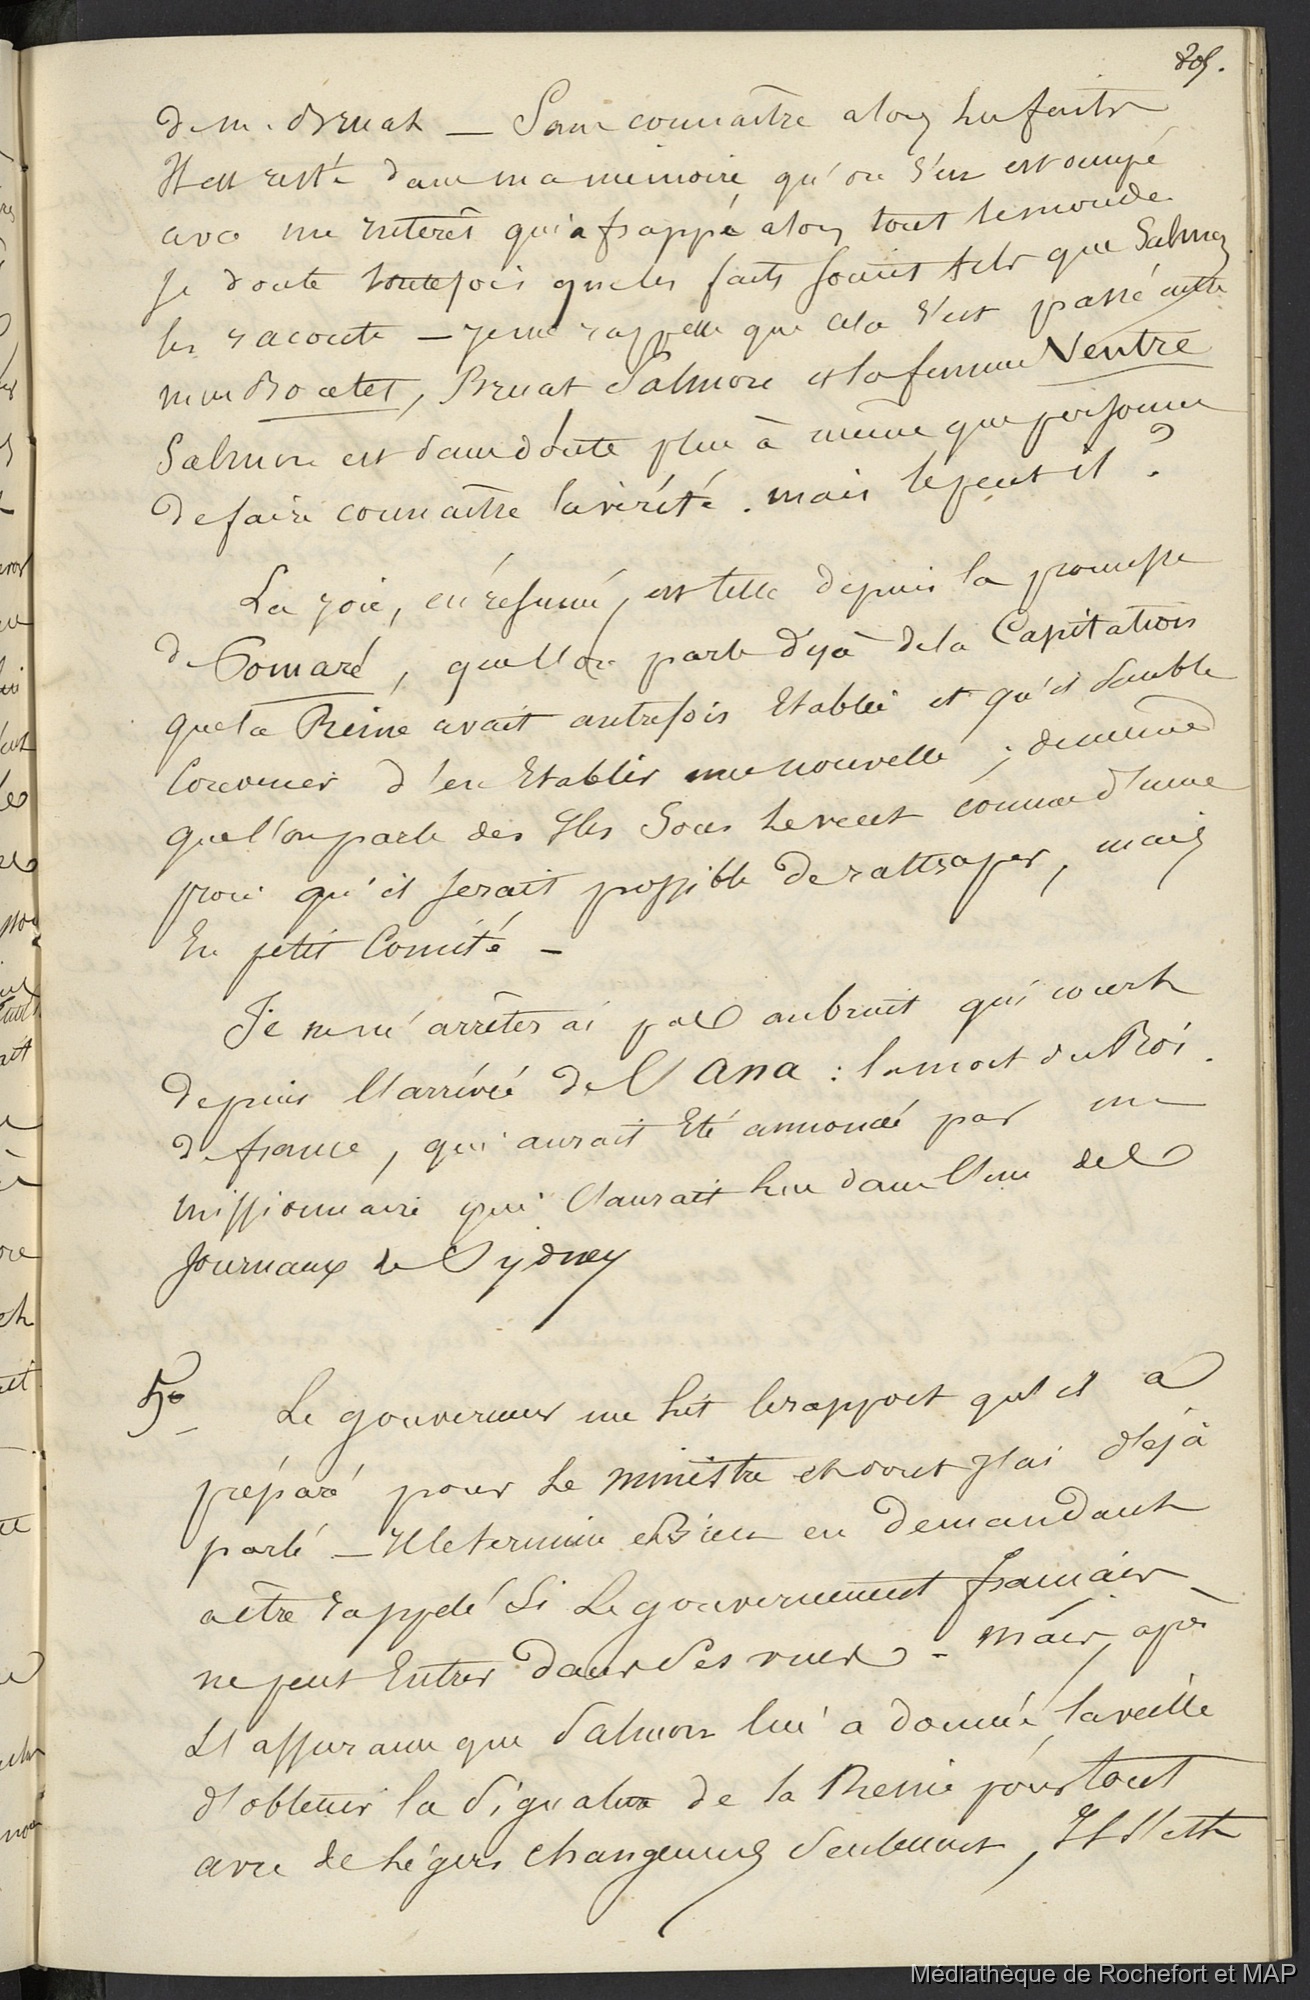 205.
de M. Bruat — Sans connaître alors les faits
Il est resté dans ma mémoire, qu'on s'en est occupé
avec un interêt qui a frappé alors tout le monde.
Je doute toutefois que les faits soient tels que Salmon
les raconte — Je me rappelle que cela s'est passé entre
mm Bo et, Bruat Salmon et la femme Ventre
Salmon est sans doute plus à même que personne
de faire connaître la vérité. mais le peut il ?
La joie, en résumé, est telle depuis la promesse
de Pomaré, que l'on parle déjà de la Capitation
que la Reine avait autrefois Etablie et qu'il semble
Convenir d'en Etablir une nouvelle ; de même
que l'on parle des Iles Sous le vent comme d'une
proie qu'il serait possible de rattraper, mais
En petit Comité —
Je ne m'arrêterai pas au bruit qui court
depuis l'arrivée de l'Ana : la mort du Roi
de france, qui aurait Eté annoncée par un
missionnaire qui l'aurait lue dans l'un des
Journaux de Sydney
5° Le gouverneur me lit le rapport qu'il a
préparé pour le ministre et dont j'ai déjà
parlé — Il le termine et bien en demandant
a être rappelé Si Le gouvernement français
ne peut Entrer dans Ses vues — mais, après
L'assurance que Salmon lui a donnée, la veille
d'obtenir la Signature de la Reine pour tout
avec de légers changemens Seulement, Il s'est
Médiathèque de Rochefort et MAP